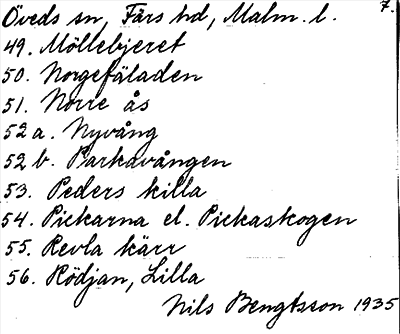 Öveds sn, Färs hd, Malm. l. 7.
49. Möllebjeret
50. Norgefäladen
51. Norre ås
52a. Nyvång
52b. Parkavången
53. Peders killa
54. Pickarna el. Pickaskogen
55. Revla kärr
56. Rödjan, Lilla
Nils Bengtsson 1935